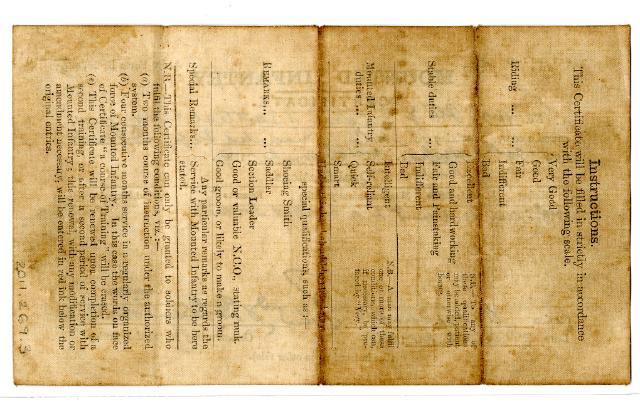 Instructions.
This Certificate will be filled in strictly in accordance
with the following scale.
Riding ... ... Very Good
Good
Fair
Indifferent
Bad
Stable duties ... Excellent
Good and hardworking
Fair and Painstaking
Indifferent
Bad
N.B. To any of
these qualifications
may be added
or otherwise with
horses.
Mounted Infantry
duties ... ... Intelligent
Self-reliant
Quick
Smart
N.B. A man may fulfil
one or more of these
conditions, which can,
if necessary, be
"Very."
special qualifications, such as :—
REMARKS... ... Shoeing Smith
Saddler
Section Leader
Good or valuable N.C.O., stating rank.
Good groom, or likely to make a groom.
Special Remarks... Any particular remarks as regards the
Service with Mounted Infantry to be here
stated.
N.B.—This Certificate can only be granted to soldiers who
fulfil the following conditions, viz.:—
(a) Two months course of instruction under the authorized
system.
(b) Four consecutive months service in a regularly organized
force of Mounted Infantry, in this case the words on face
of Certificate "a course of Training" will be erased.
(c) This Certificate will be renewed upon completion of a
second training, or after a second period of service with
Mounted Infantry; this renewal, with any modification or
amendment necessary, will be entered in red ink below the
original entries.
2011.269.3